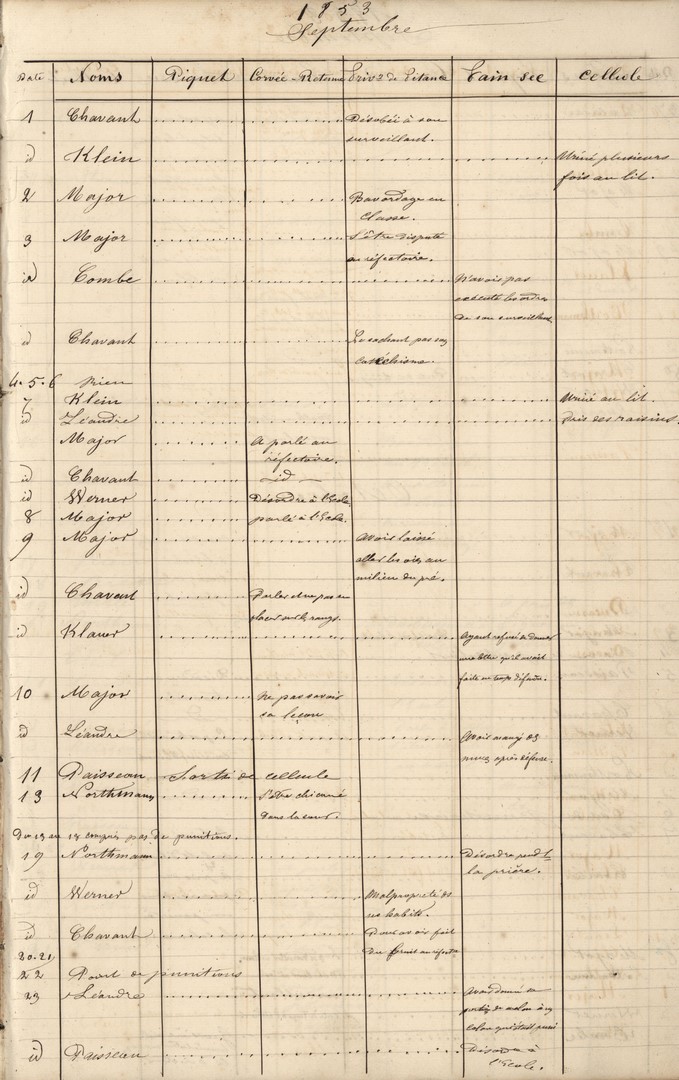 1853
Septembre
Date Noms Piquet Corvée - Retenue Priv.on de Pitance Pain sec Cellule
1 Chavant Désobéi à son
surveillant.
id Klein Uriné plusieurs
fois au lit.
2 Major Bavardage en
classe.
3 Major S'être disputé
au réfectoire.
id Combe N'avoir pas
exécuté les ordres
de son surveillant
id Chavant Ne sachant pas son
catéchisme.
4. 5. 6 Rien
7 Klein Uriné au lit.
id Léandre Pris des raisins.
Major A parlé au
réfectoire.
id Chavant id
id Werner Désordre à l'école.
8 Major parlé à l'école.
9 Major Avoir laissé
aller les oies au
milieu du pré.
id Chavant Parler et ne pas se
placer sur les rangs.
id Klauer Ayant refusé de donner
une lettre qu'il avait
faite en temps défendu.
10 Major Ne pas savoir
sa leçon
id Léandre Avoir mangé des
mures après défense.
11 Paisseau Sorti de cellule
13 Northmann S'être chicané
dans la cour.
Du 13 au 18 compris pas de punitions.
19 Northmann Désordre pend.t
la prière.
id Werner Malpropreté de
ses habits.
id Chavant Pour avoir pris
du fruit au réfectoire
20. 21,
22 Point de punitions
23 Léandre Avoir donné une
portion de melon à un
colon qui était puni
id Paisseau Désordre à
l'école.